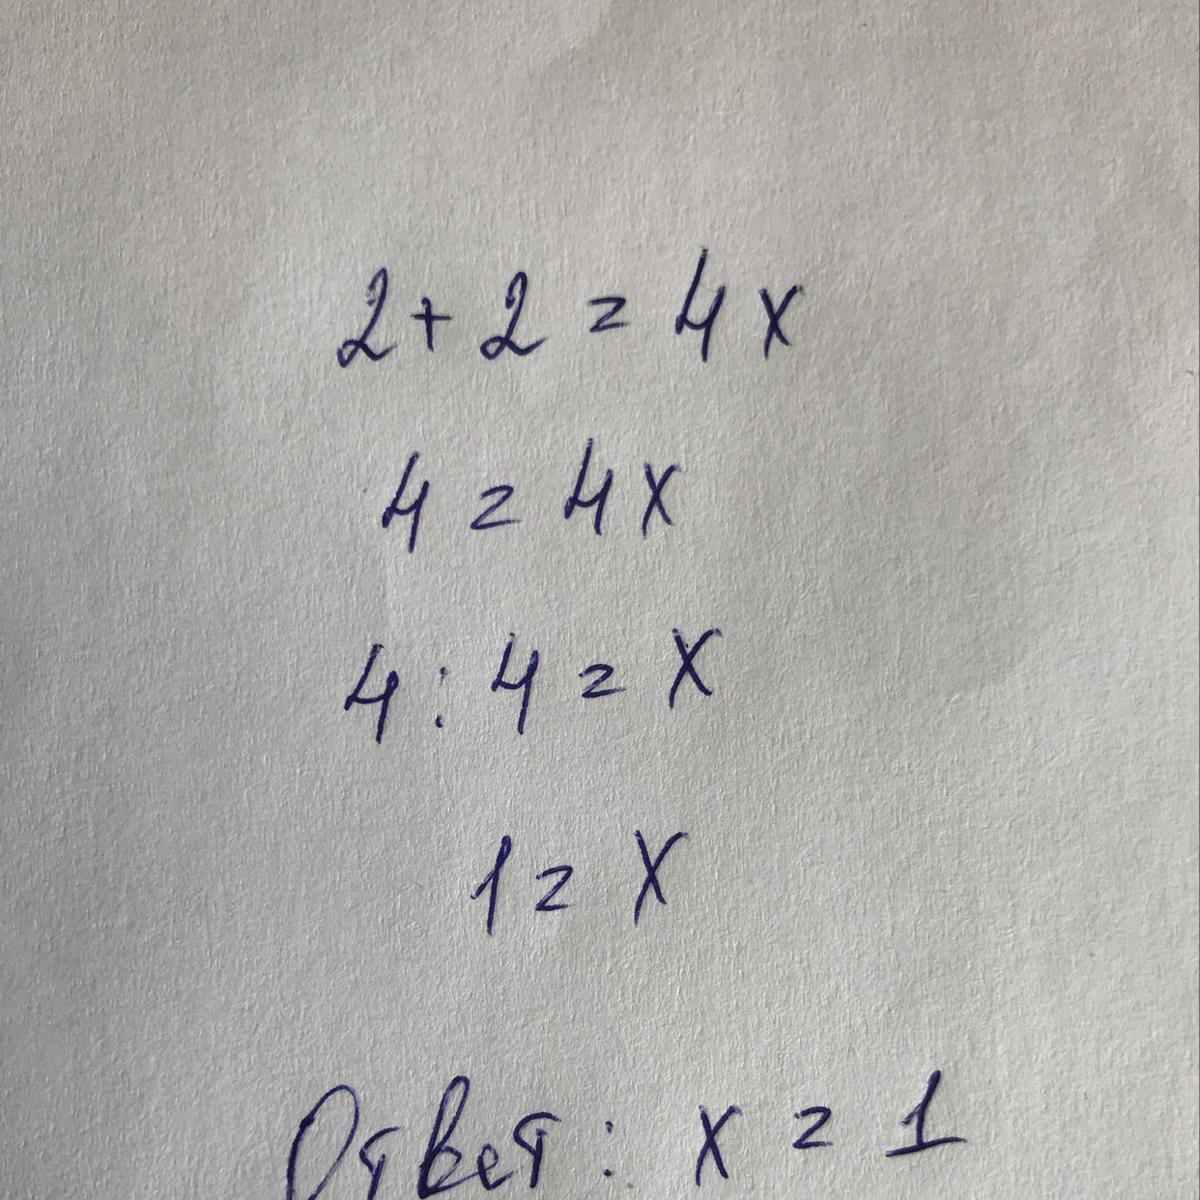 2 + 2 = 4x
4 = 4x
4 : 4 = x
1 = x
Ответ: x = 1